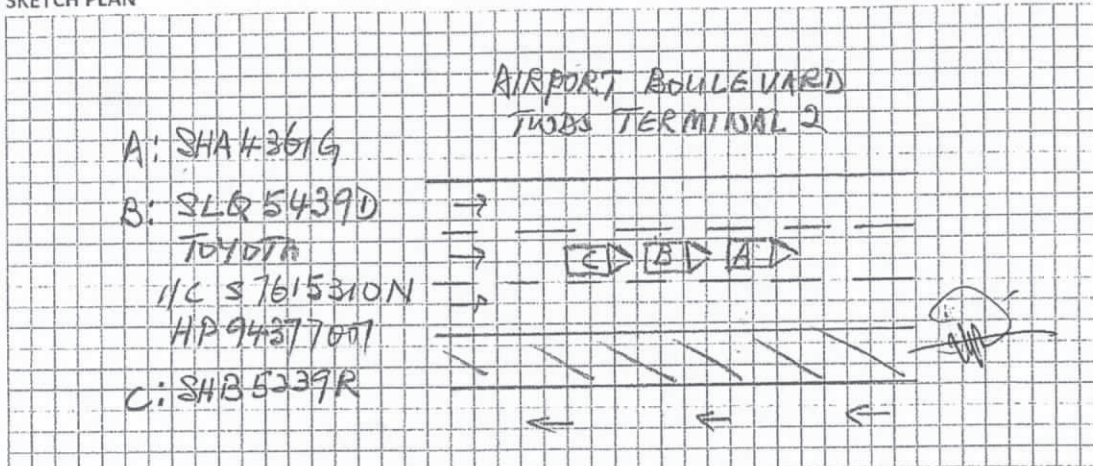 SKETCH PLAN
AIRPORT BOULEVARD
TWDS TERMINAL 2
A: SHA4361G
B: SLQ5439D
TOYOTA
I/C S7615310N
HP 94377007
C: SHB5239R
C B A